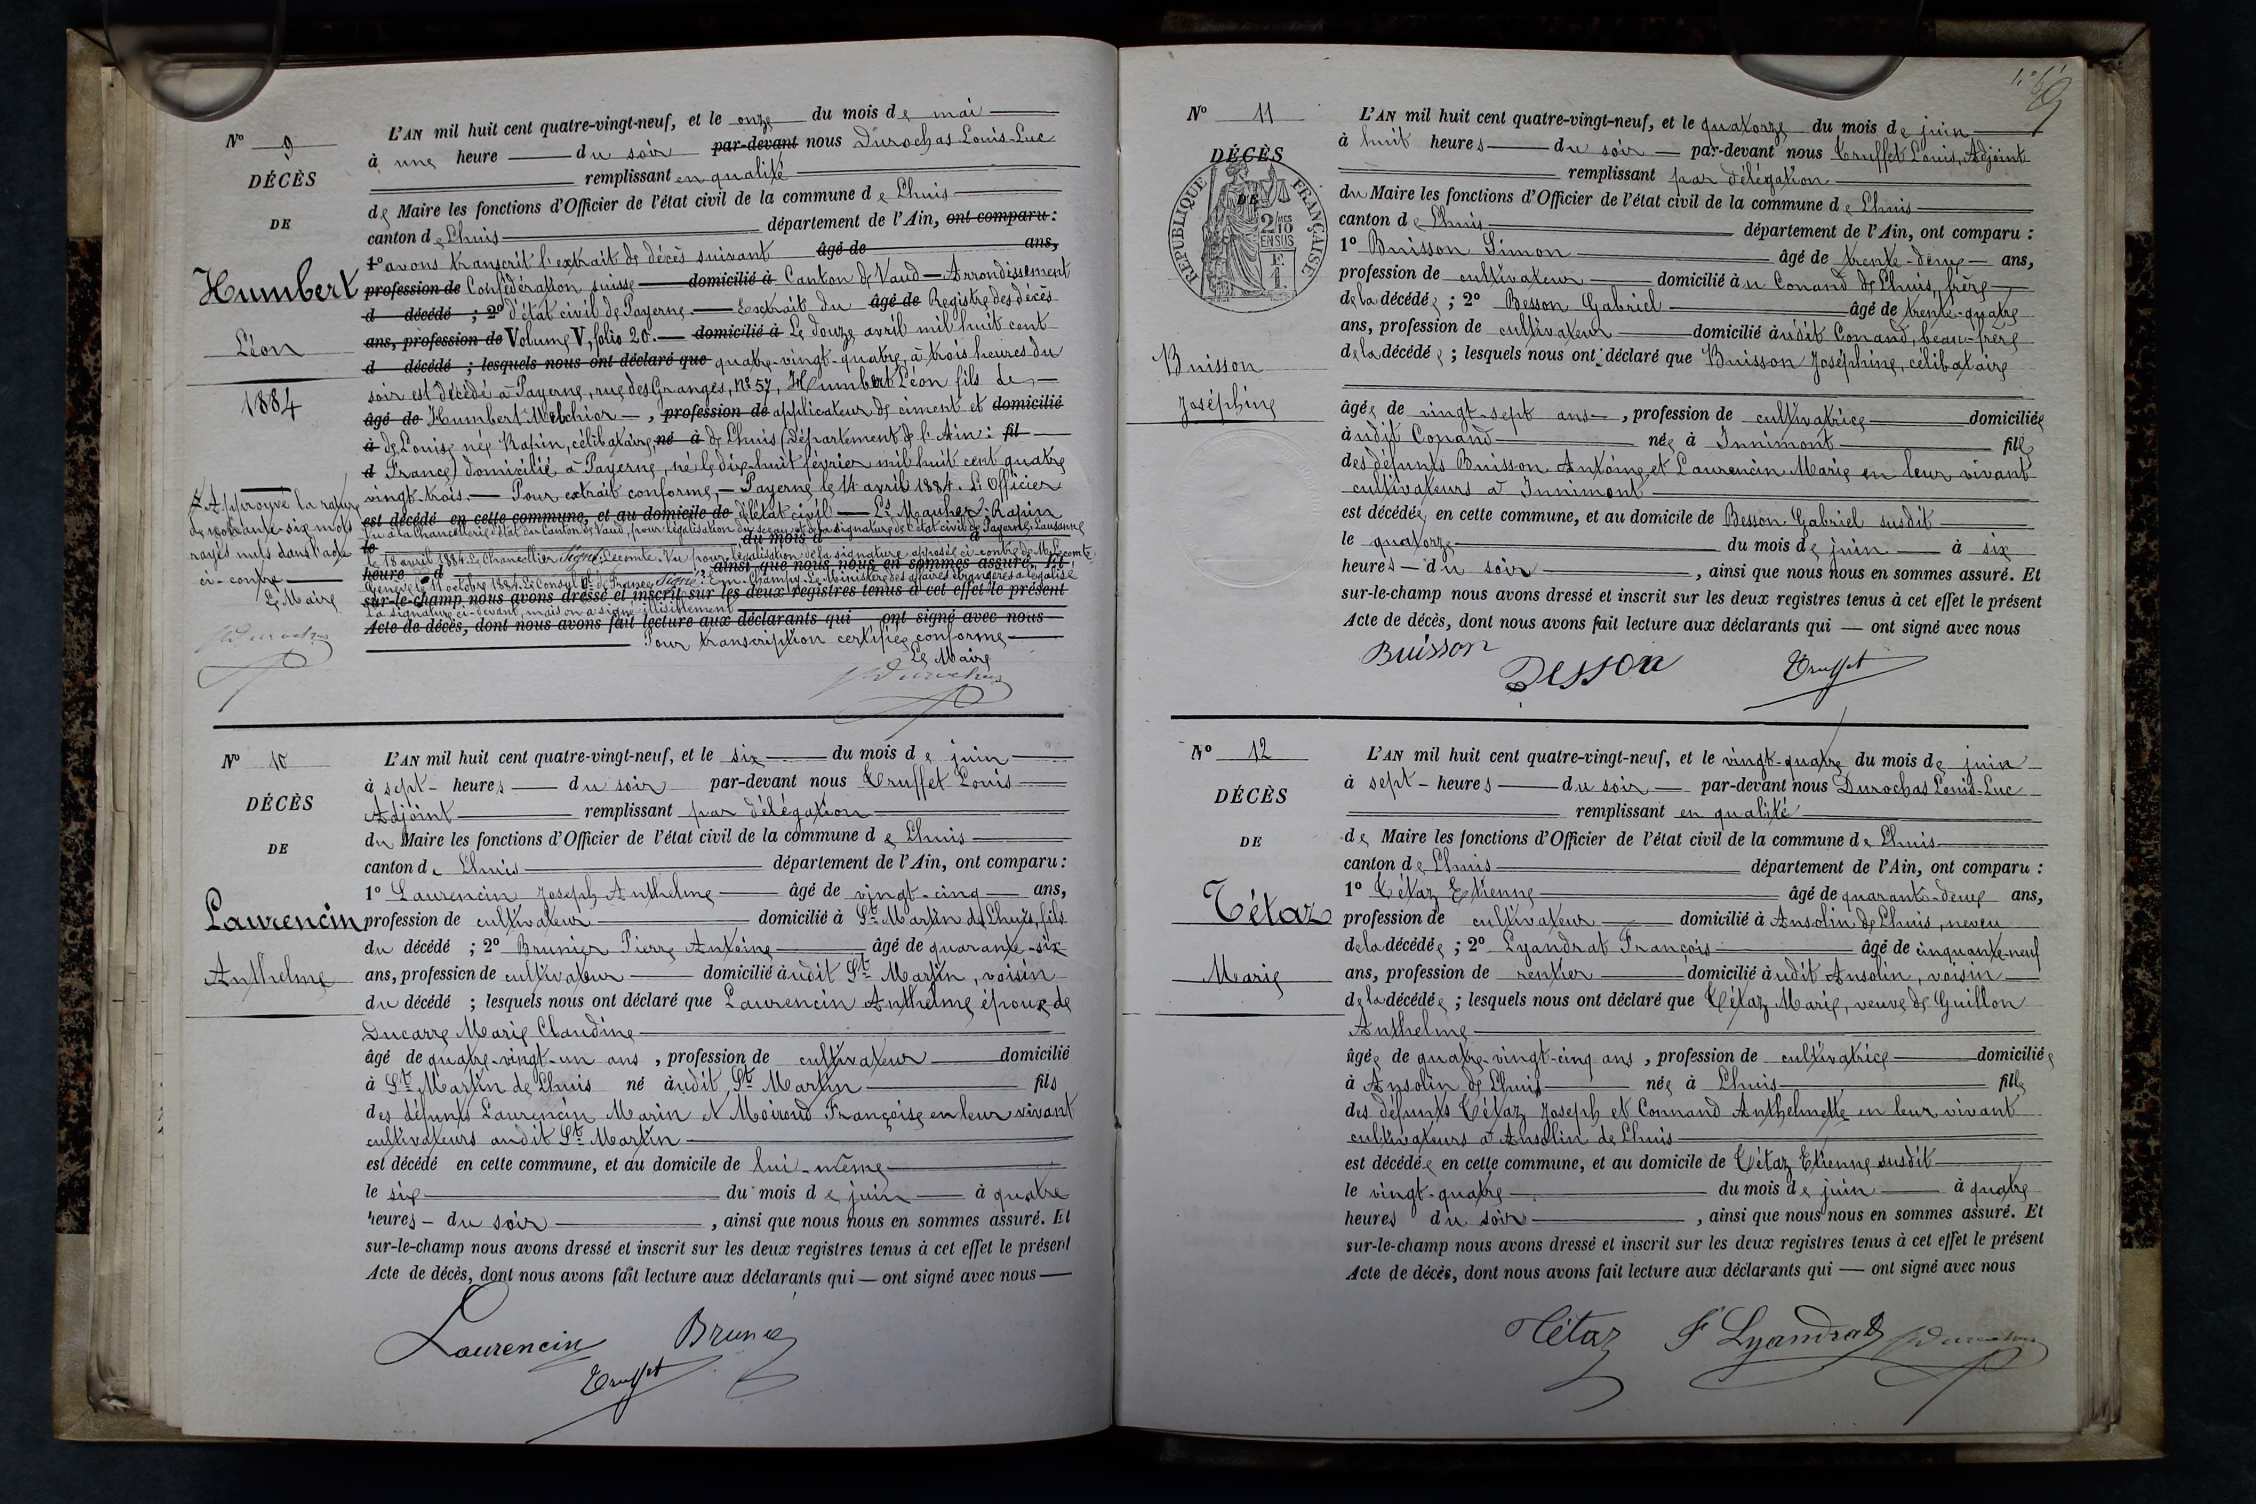 N° 9
DÉCÈS
DE
Humbert
Léon
1884
Approuvé la rature
de soixante-six mots
rayés nuls dans l'acte
ci-contre
Le Maire
L'AN mil huit cent quatre-vingt-neuf, et le onze du mois de mai
à une heure du soir par-devant nous Durochas Louis-Luc
remplissant en qualité
de Maire les fonctions d'Officier de l'état civil de la commune de Lhuis
canton de Lhuis département de l'Ain, ont comparu :
1° avons transcrit l'extrait de décès suivant âgé de ans,
profession de Confédération suisse domicilié à Canton de Vaud — Arrondissement
d décédé ; 2° d'état civil de Payerne. — Extrait du âgé de Registre des décès
ans, profession de Volume V, folio 20. — domicilié à Le douze avril mil huit cent
d décédé ; lesquels nous ont déclaré que quatre-vingt-quatre, à trois heures du
soir est décédé à Payerne, rue des Granges, N° 57, Humbert Léon fils de
âgé de Humbert Melchior —, profession de applicateur de ciment et domicilié
à de Louise née Rapin, célibataire, né à de Lhuis (Département de l'Ain: fil
d France) domicilié à Payerne, né le dix-huit février mil huit cent quatre
vingt-trois. — Pour extrait conforme, — Payerne le 14 avril 1884. L'Officier
est décédé en cette commune, et au domicile de d'état civil — Rapin
Vu à la Chancellerie d'état du Canton de Vaud, pour légalisation du sceau et de la signature de l'état civil de Payerne, Lausanne
le du mois d à
le 18 avril 1884. Le Chancellier Signé: Lecomte. Vu pour légalisation de la signature apposée ci-contre de M. Lecomte
heure d , ainsi que nous nous en sommes assuré. Et
Genève le 11 octobre 1884. Le Consul Gl de France, Signé: Em. Champy. Le Ministère des affaires étrangères a légalisé
sur-le-champ nous avons dressé et inscrit sur les deux registres tenus à cet effet le présent
la signature ci-devant, mais on a signé illisiblement
Acte de décès, dont nous avons fait lecture aux déclarants qui ont signé avec nous
Pour transcription certifiée conforme
Le Maire
N° 10
DÉCÈS
DE
Laurencin
Anthelme
L'AN mil huit cent quatre-vingt-neuf, et le six du mois de juin
à sept heures du soir par-devant nous Truffet Louis
Adjoint remplissant par délégation
du Maire les fonctions d'Officier de l'état civil de la commune de Lhuis
canton de Lhuis département de l'Ain, ont comparu :
1° Laurencin Joseph Anthelme âgé de vingt-cinq ans,
profession de cultivateur domicilié à St Martin de Lhuis, fils
du décédé ; 2° Brunier Pierre Antoine âgé de quarante-six
ans, profession de cultivateur domicilié àudit St Martin, voisin
du décédé ; lesquels nous ont déclaré que Laurencin Anthelme époux de
Ducarre Marie Claudine
âgé de quatre-vingt-un ans, profession de cultivateur domicilié
à St Martin de Lhuis né àudit St Martin fils
des défunts Laurencin Marin et Moiroud Françoise en leur vivant
cultivateurs audit St Martin
est décédé en cette commune, et au domicile de lui-même
le six du mois de juin à quatre
heures du soir , ainsi que nous nous en sommes assuré. Et
sur-le-champ nous avons dressé et inscrit sur les deux registres tenus à cet effet le présent
Acte de décès, dont nous avons fait lecture aux déclarants qui — ont signé avec nous —
Laurencin
Truffet
N° 11
DÉCÈS
DE
RÉPUBLIQUE FRANÇAISE
2/10 EN SUS
Buisson
Joséphine
L'AN mil huit cent quatre-vingt-neuf, et le quatorze du mois de juin
à huit heures du soir par-devant nous Truffet Louis, Adjoint
remplissant par délégation
du Maire les fonctions d'Officier de l'état civil de la commune de Lhuis
canton de Lhuis département de l'Ain, ont comparu :
1° Buisson Simon âgé de trente-deux ans,
profession de cultivateur domicilié àu Conand de Lhuis, frère
de la décédée ; 2° Besson Gabriel âgé de trente-quatre
ans, profession de cultivateur domicilié àudit Conand, beau-frère
de la décédée ; lesquels nous ont déclaré que Buisson Joséphine, célibataire
âgée de vingt-sept ans, profession de cultivatrice domiciliée
àudit Conand née à Innimont fille
des défunts Buisson Antoine et Laurencin Marie en leur vivant
cultivateurs à Innimont
est décédée, en cette commune, et au domicile de Besson Gabriel susdit
le quatorze du mois de juin à six
heures du soir , ainsi que nous nous en sommes assuré. Et
sur-le-champ nous avons dressé et inscrit sur les deux registres tenus à cet effet le présent
Acte de décès, dont nous avons fait lecture aux déclarants qui — ont signé avec nous
Buisson
Besson
Truffet
N° 12
DÉCÈS
DE
Tétaz
Marie
L'AN mil huit cent quatre-vingt-neuf, et le vingt-quatre du mois de juin
à sept heures du soir par-devant nous Durochas Louis-Luc
remplissant en qualité
de Maire les fonctions d'Officier de l'état civil de la commune de Lhuis
canton de Lhuis département de l'Ain, ont comparu :
1° Tétaz Etienne âgé de quarante-deux ans,
profession de cultivateur domicilié à Ansolin de Lhuis, neveu
de la décédée ; 2° Lyandrat François âgé de cinquante-neuf
ans, profession de rentier domicilié àudit Ansolin, voisin
de la décédée ; lesquels nous ont déclaré que Tétaz Marie, veuve de Guillon
Anthelme
âgée de quatre-vingt-cinq ans, profession de cultivatrice domiciliée
à Ansolin de Lhuis née à Lhuis fille
des défunts Tétaz Joseph et Connand Anthelmette en leur vivant
cultivateurs à Ansolin de Lhuis
est décédée en cette commune, et au domicile de Tétaz Etienne susdit
le vingt-quatre du mois de juin à quatre
heures du soir , ainsi que nous nous en sommes assuré. Et
sur-le-champ nous avons dressé et inscrit sur les deux registres tenus à cet effet le présent
Acte de décès, dont nous avons fait lecture aux déclarants qui — ont signé avec nous
Tétaz F Lyandrat